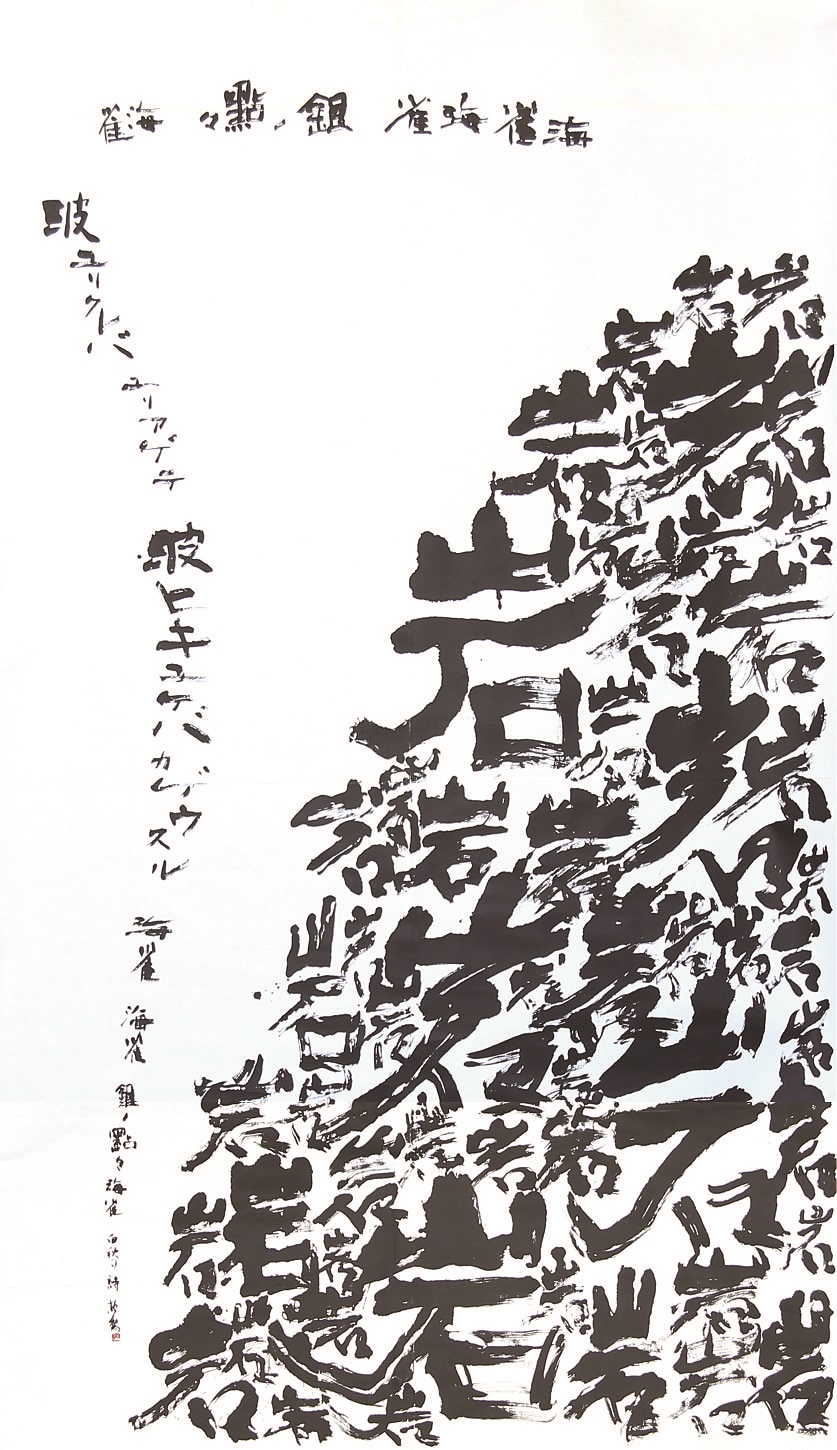 海雀海雀 銀ノ點々 海雀
岩岩岩岩岩岩岩岩岩岩岩岩岩岩岩岩岩岩岩岩岩岩岩岩岩岩岩岩岩岩
波ユリクレバ ユリアゲテ
波ヒキユケバカゲウスル
海雀 海雀 銀ノ點々海雀 白秋ノ詩